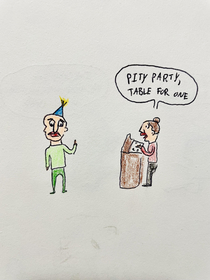 PITY PARTY,
TABLE FOR ONE